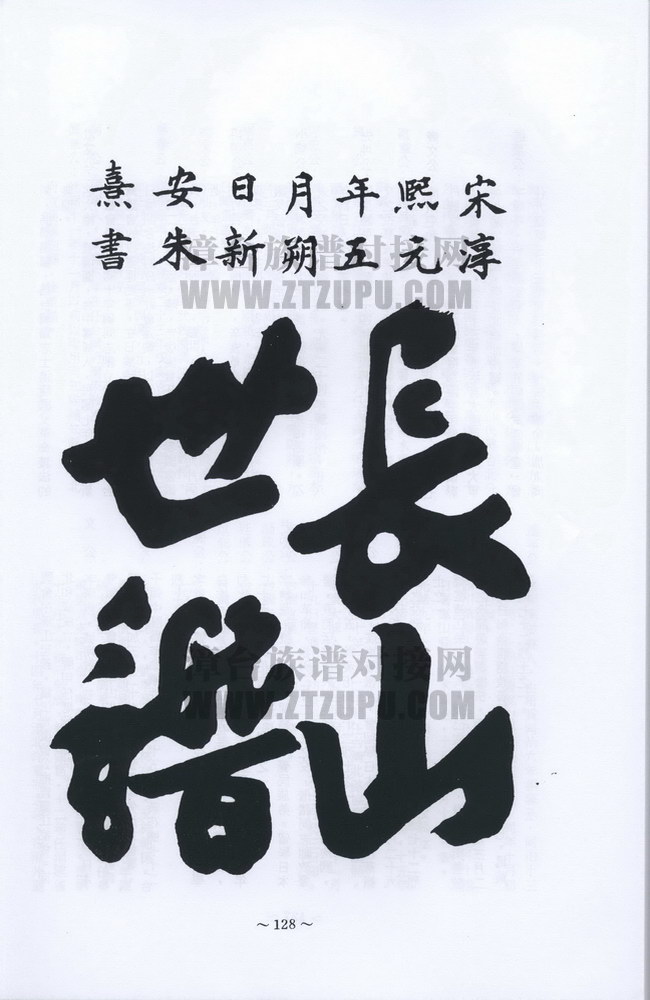 宋淳
熙元
年五
月朔
日新
安朱
熹書
漳台族谱对接网
WWW.ZTZUPU.COM
長山
世譜
漳台族谱对接网
WWW.ZTZUPU.COM
~128~